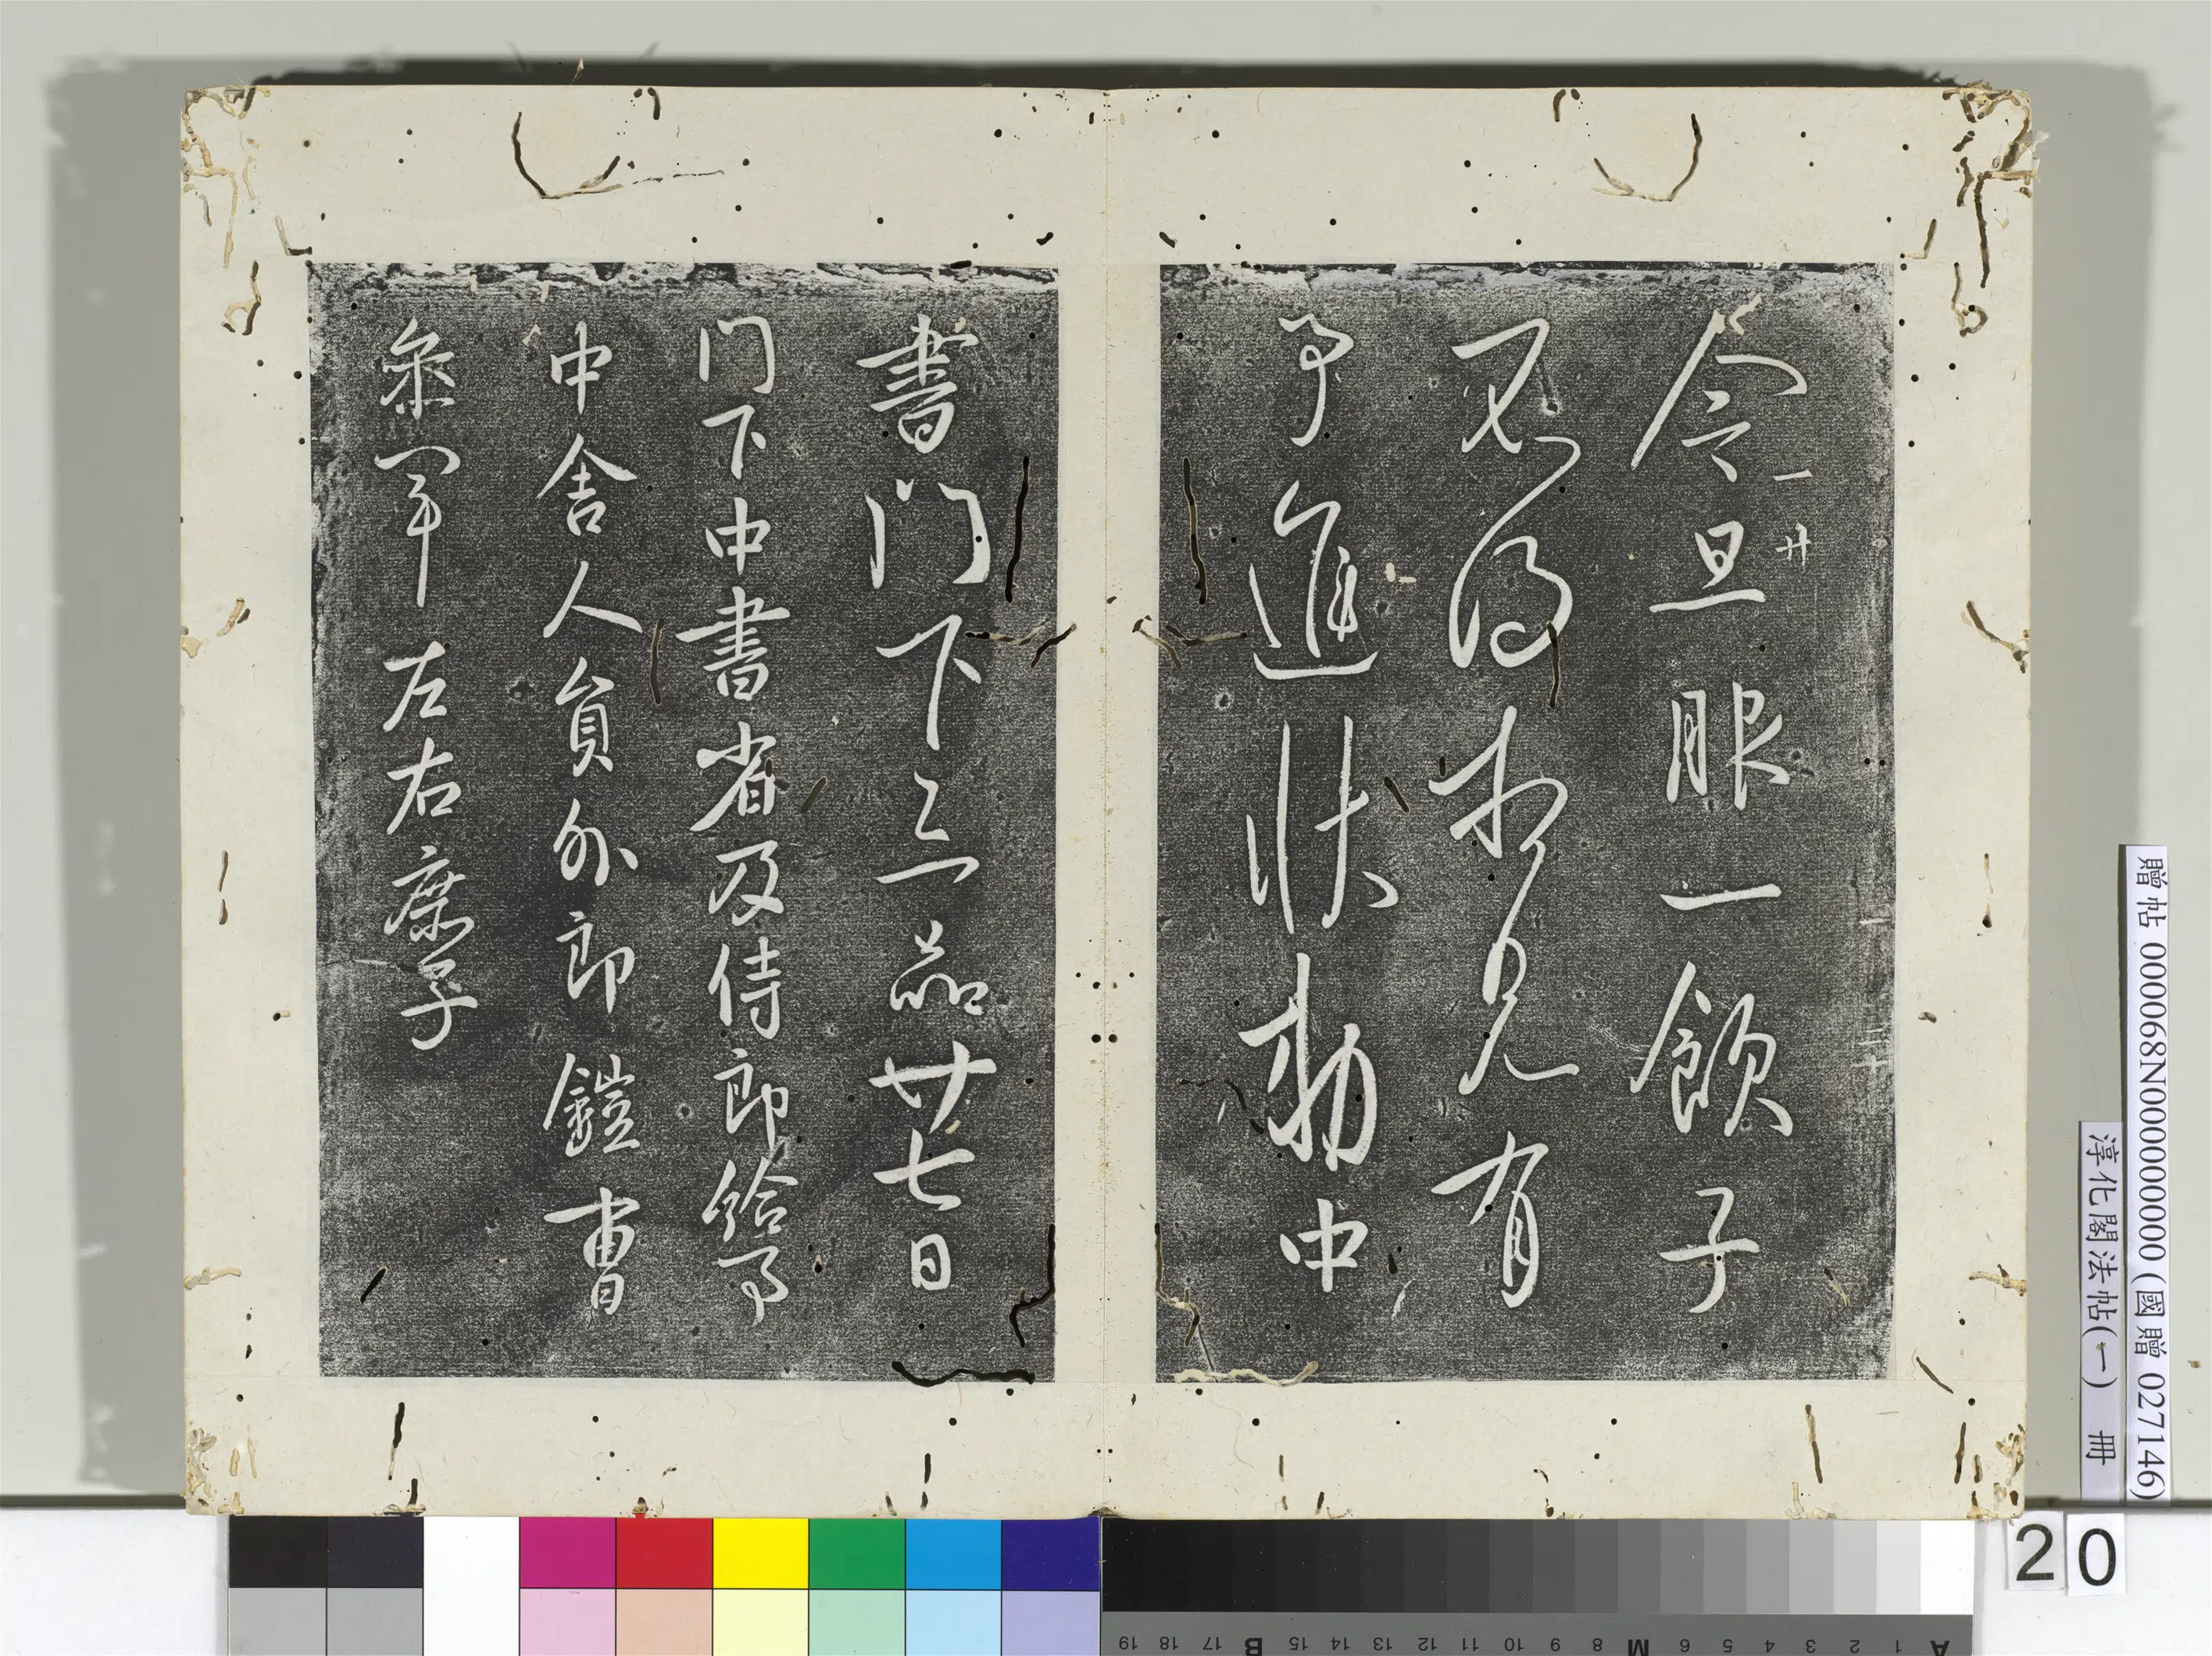 今旦服一飲子
不得相見有
事進狀勅中
書门下三品廿七日
门下中書省及侍郎給事
中舍人負外郎鎧曹
叅軍 左右庶子
一 廿
贈帖 000068N000000000 (國贈 027146)
淳化閣法帖(一) 冊
20
A 1 2 3 4 5 6 M 8 9 10 11 12 13 14 15 B 17 18 19